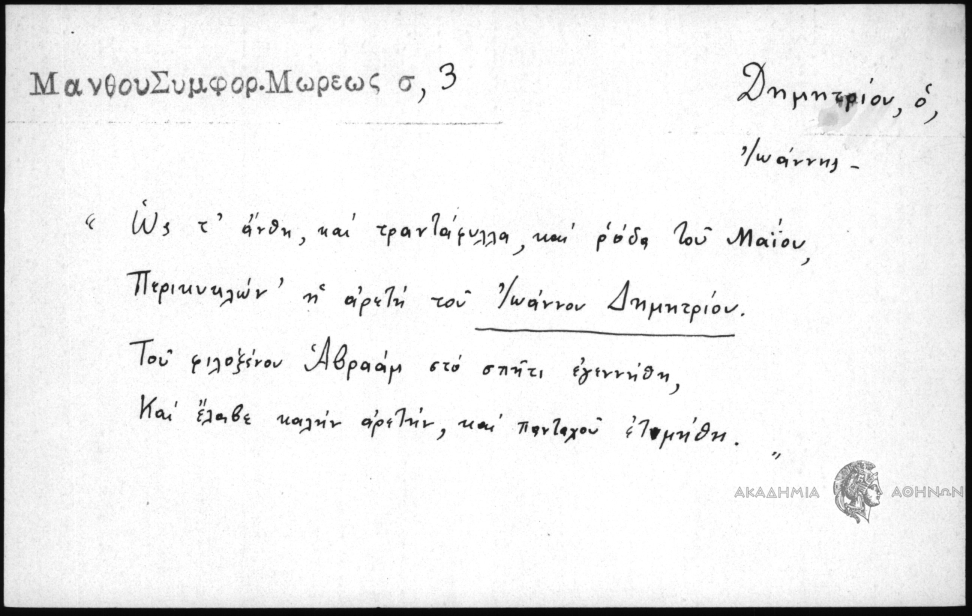 ΜανθουΣυμφορ.Μωρεως σ, 3
Δημητρίου, ὁ,
Ἰωάννης -
“ Ὡς τ' ἄνθη, καί τραντάφυλλα, καί ῥόδα τοῦ Μαΐου,
Περικυκλών' ἡ ἀρετή τοῦ Ἰωάννου Δημητρίου.
Τοῦ φιλοξένου Ἀβραάμ στό σπῆτι ἐγεννήθη,
Καί ἔλαβε καλήν ἀρετήν, καί πανταχοῦ ἐτιμήθη. „
ΑΚΑΔΗΜΙΑ ΑΘΗΝΩΝ